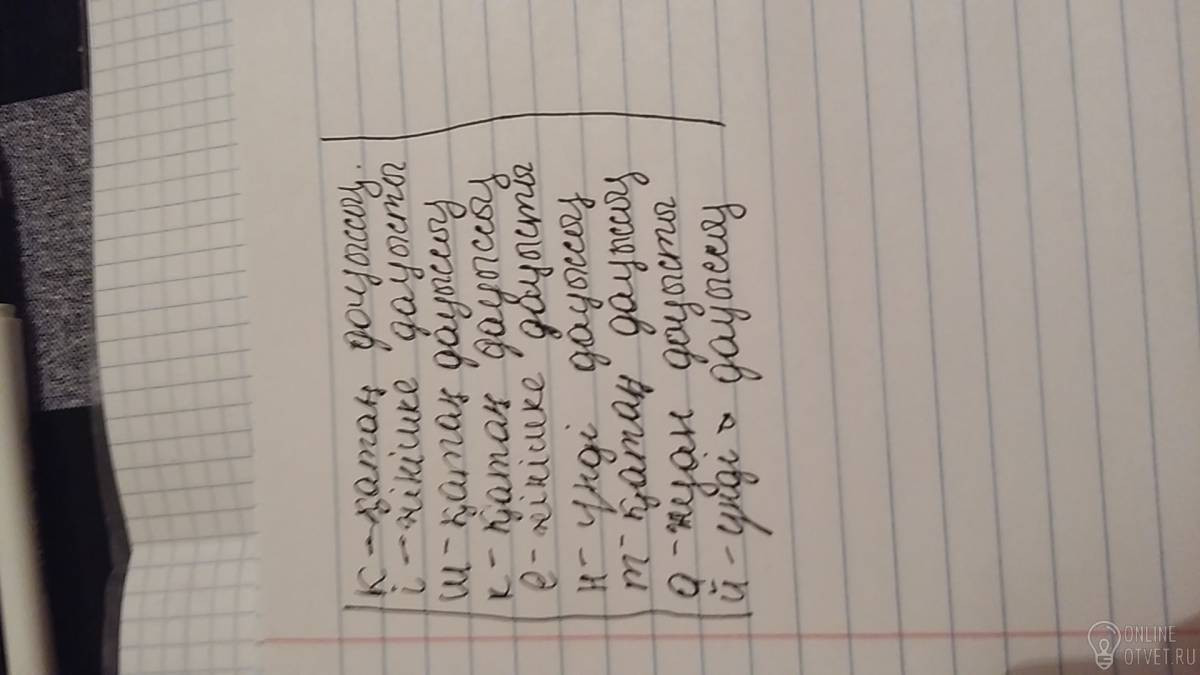 к - қатаң дауыссыз.
і - жіңішке дауысты
ш - қатаң дауыссыз
к - қатаң дауыссыз
е - жіңішке дауысты
н - үнді дауыссыз
т - қатаң дауыссыз
а - жуан дауысты
й - үнді дауыссыз
ONLINE
OTVET.RU